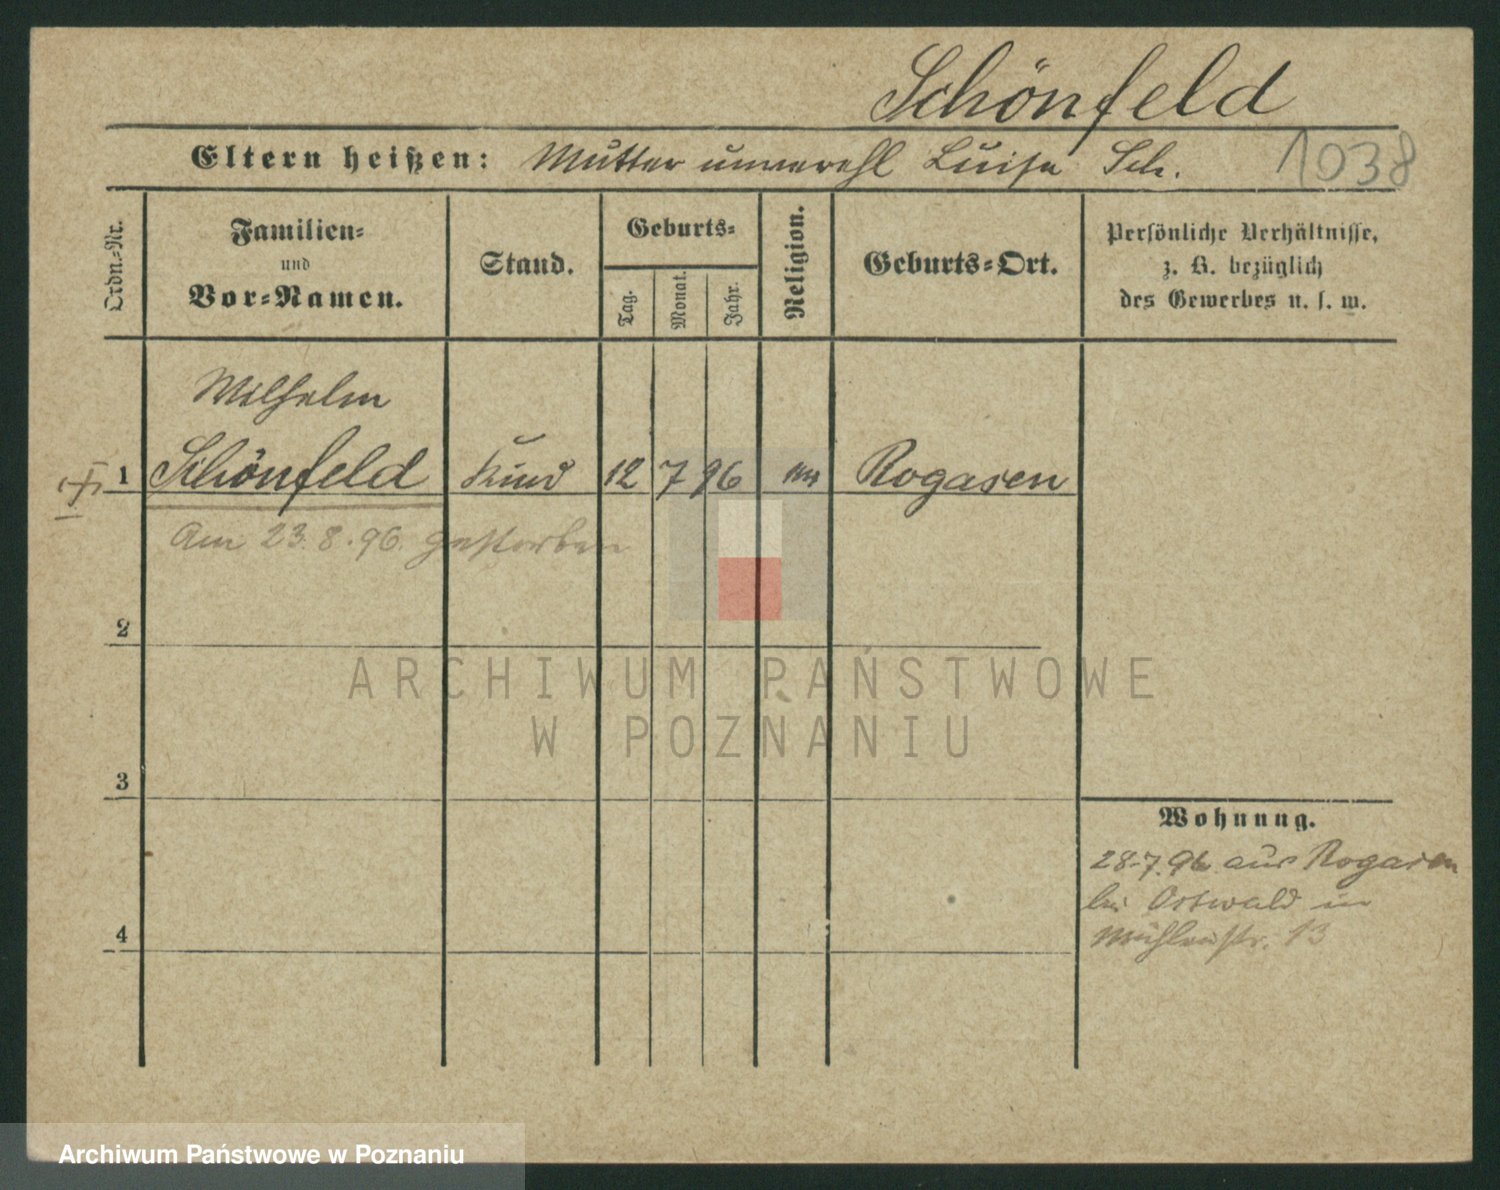 Schönfeld
Eltern heißen: Mutter unverehl Luise Sch. 1038
Ordn.-Nr.
Familien-
und
Vor-Namen.
Stand.
Geburts-
Tag.
Monat.
Jahr.
Religion.
Geburts-Ort.
Persönliche Verhältnisse,
z. B. bezüglich
des Gewerbes u. s. w.
Wilhelm
1 Schönfeld Kind 12 7 96 Rogasen
Am 23.8.96. gestorben
2
3
4
Wohnung.
28.7.96 aus Rogasen
bei Ostwald in
Mühlenstr. 13
ARCHIWUM PAŃSTWOWE
W POZNANIU
Archiwum Państwowe w Poznaniu